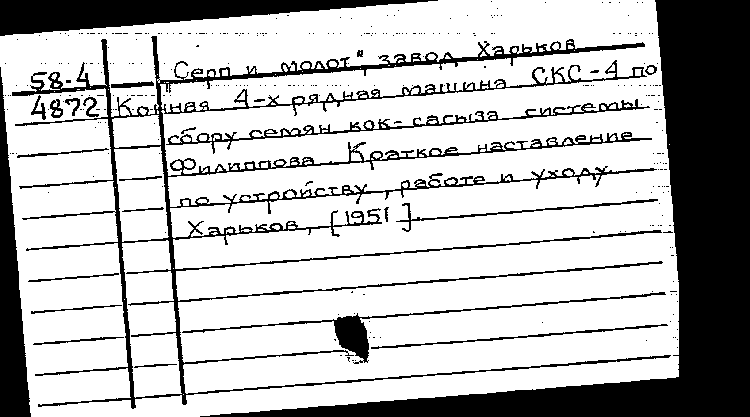 58-4 "Серп и молот", завод, Харьков
4872 Конная 4-х рядная машина СКС-4 по
сбору семян кок-сагыза системы
Филиппова. Краткое наставление
по устройству, работе и уходу.
Харьков, [1951].